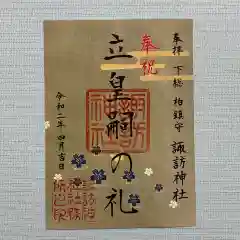 奉拝 下総 柏鎮守 諏訪神社
奉祝
立皇嗣の礼
令和二年 四月吉日
諏訪神社